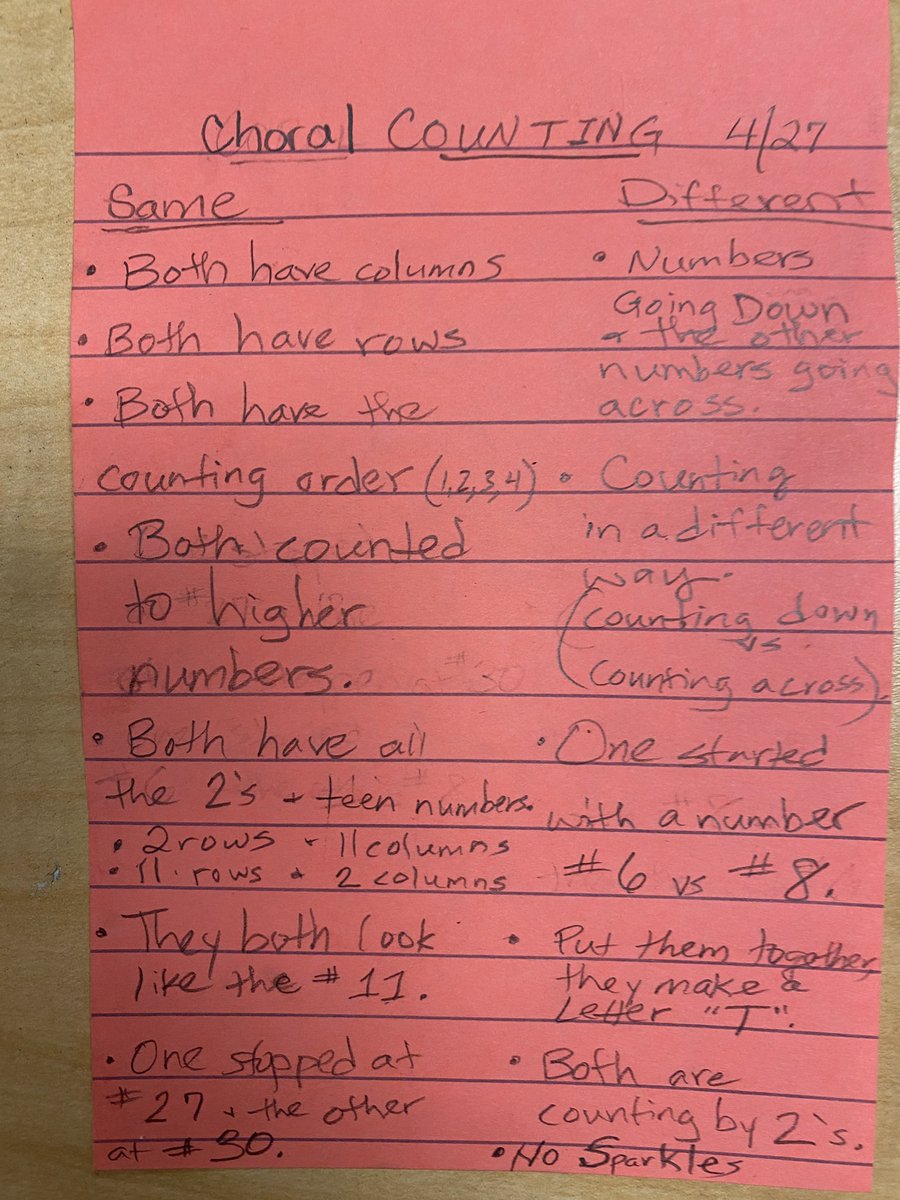 Choral COUNTING 4/27
Same
• Both have columns
• Both have rows
• Both have the
counting order (1,2,3,4)
• Both counted
to higher
numbers.
• Both have all
the 2's + teen numbers.
• 2 rows + 11 columns
• 11 rows + 2 columns
• They both look
like the # 11.
• One stopped at
#27 + the other
at #30.
Different
• Numbers
Going Down
+ the other
numbers going
across.
• Counting
in a different
way.
(counting down
vs.
counting across)
• One started
with a number
#6 vs #8.
• Put them together,
they make a
Letter "T".
• Both are
counting by 2's.
• No Sparkles